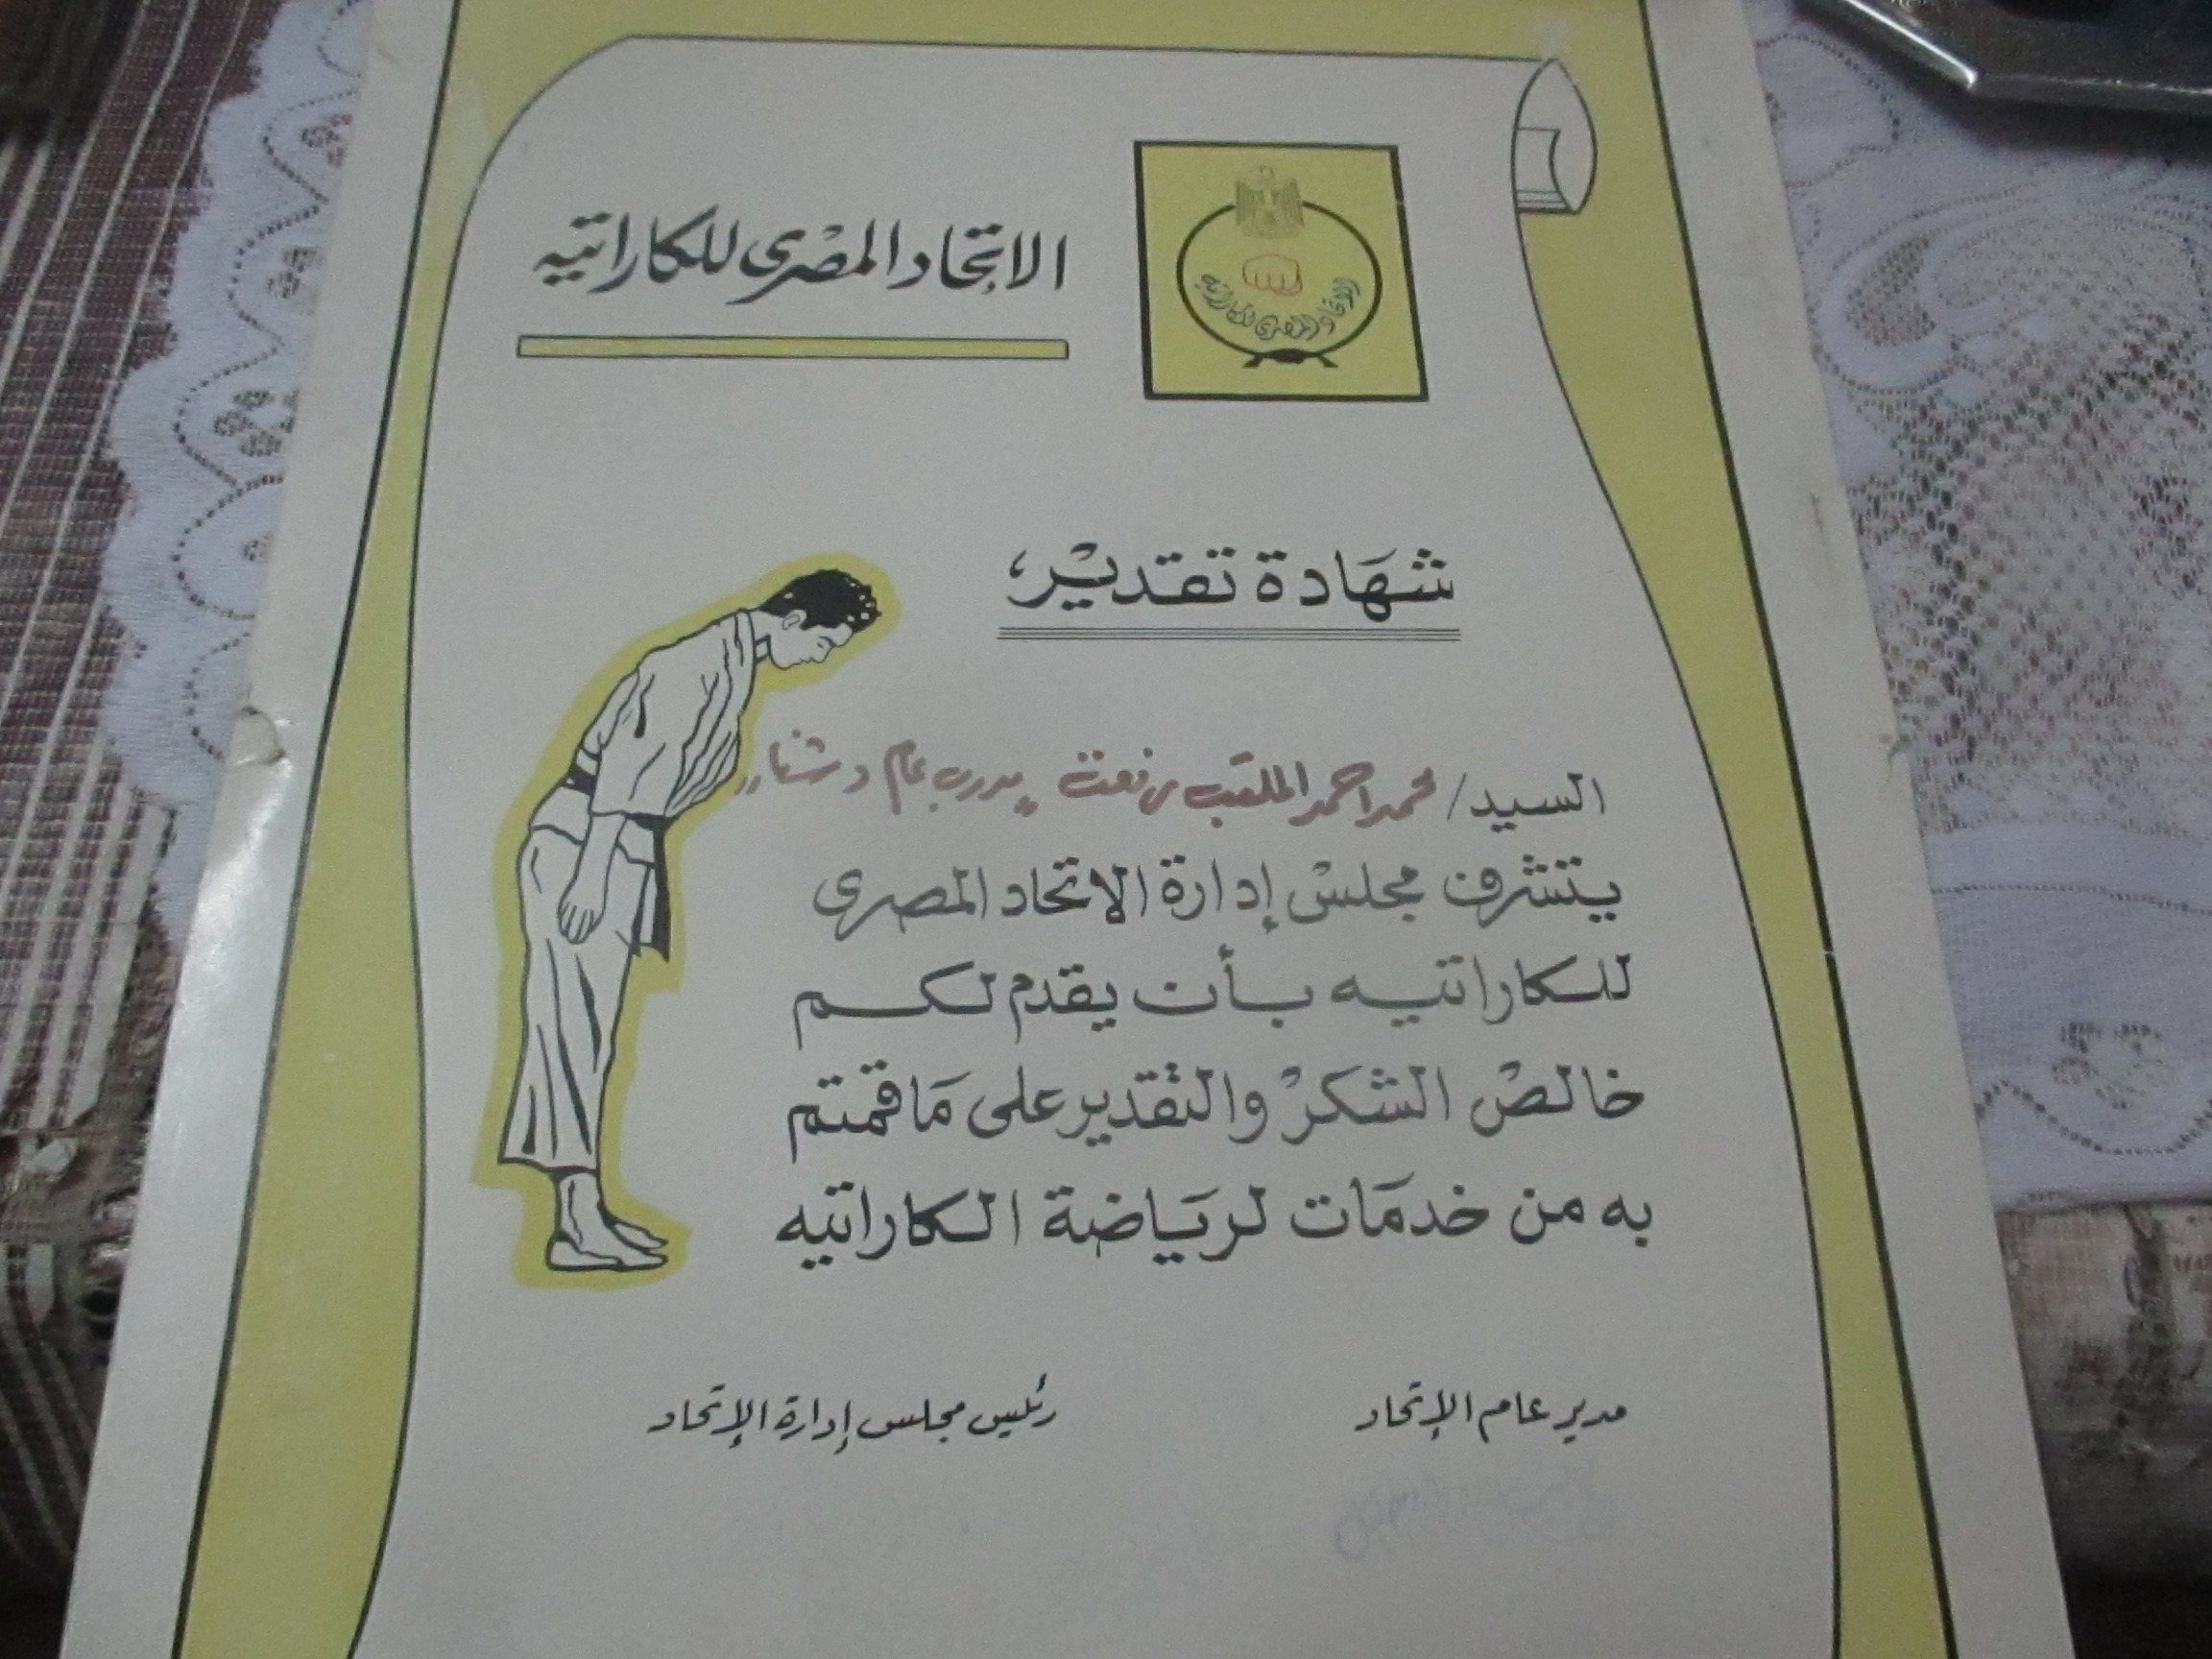 الاتحاد المصرى للكاراتيه
الاتحاد المصرى للكاراتيه
شهادة تقدير،
السيد / محمد احمد الملقب برفعت "مدرب عام دشنا"
يتشرف مجلس إدارة الاتحاد المصرى
للكاراتيه بأن يقدم لكم
خالص الشكر والتقدير على ما قمتم
به من خدمات لرياضة الكاراتيه
مدير عام الإتحاد
رئيس مجلس إدارة الإتحاد